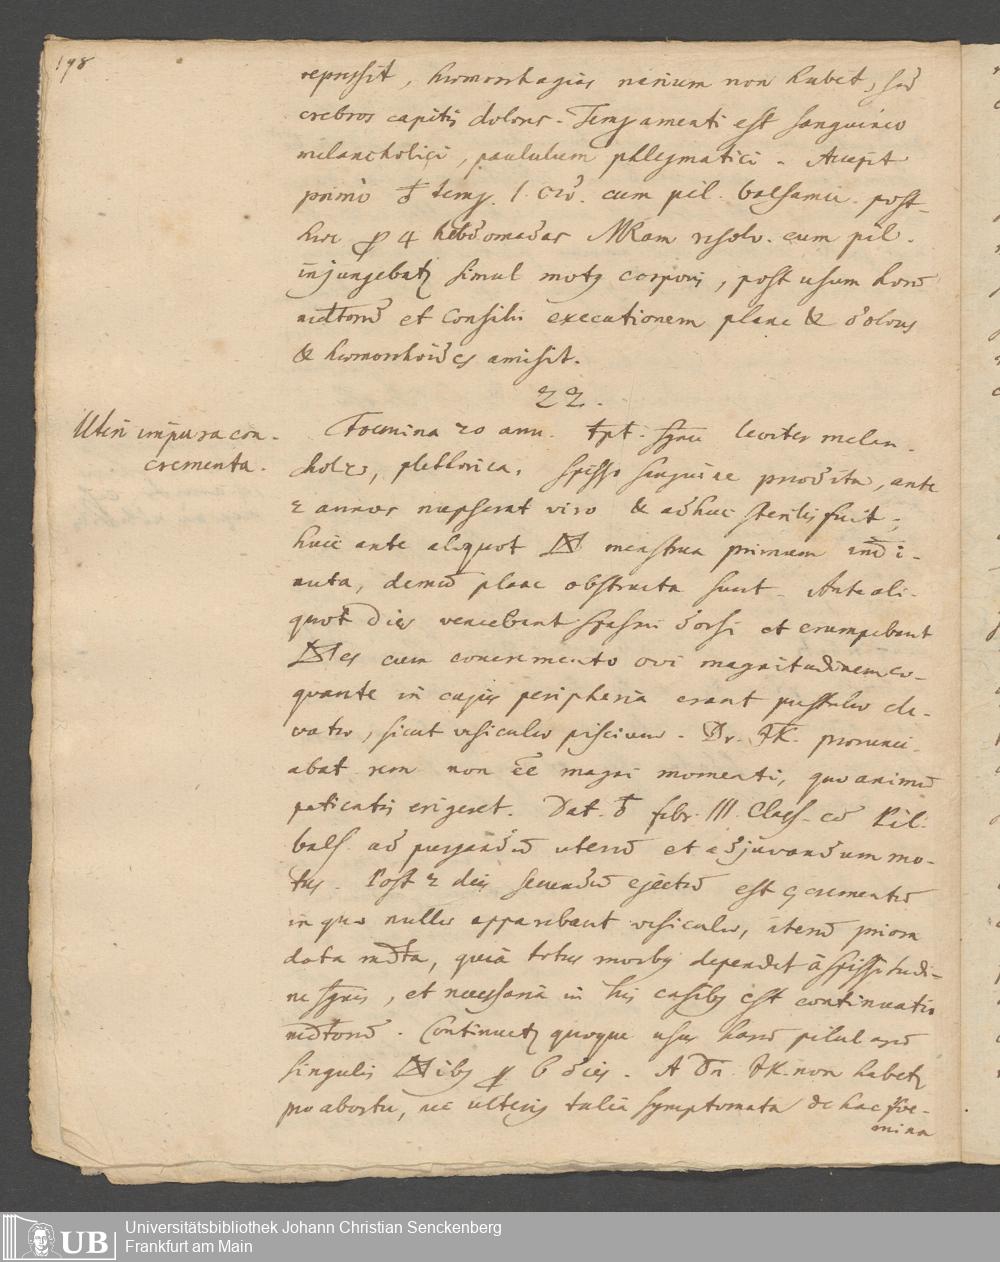 198
repressit, hæmorrhagias narium non habet, sed
crebros capitis dolores. Tempamenti est sanguineo
melancholici, paululum phlegmatici. Accepit
primò temp. 1. cum pil. balsamic. post-
hæc 4 hebdomadas resolv. cum pil.
injungebatʒ simul motʒ corporis, post usum horum
et Consilii executionem plane & dolores
& hæmorrhoides amisit.
22.
Uteri impura con-
crementa.
Foemina 20 ann. leviter melan-
chol., plethorica, spisso sanguine prædita, ante
2 annos nupserat viro & adhuc sterilis fuit;
huic ante aliquot menstrua primum im̄i-
nuta, demum plane obstructa sunt. Ante ali-
quot Dies veniebant spasmi dorsi et erumpebant
cum concremento ovi magnitudinem æ-
quante in cujus peripheria erant pustulæ ele-
vatæ, sicut vesiculæ piscium. Dr. JK. pronunci-
abat rem non ēe magni momenti, quo animum
erigeret. Dat. febr. III. Class. cum Pil.
balſ. ad purgandum uterum et adjuvandum mo-
tus. Post 2 dies secundum ejectum est ꝯcrementum
in quo nullæ apparebant vesiculæ, iterum priora
data, quia totus morbʒ dependet à spissitudi-
ne, et necessaria in his casibʒ est continuatio
. Continuetʒ quoque usus harum pilularum
singulis 6 dies. A Dn. JK. non habetʒ
pro abortu, nec ulterius talia symptomata de hac foe-
mina
Universitätsbibliothek Johann Christian Senckenberg
Frankfurt am Main
UB